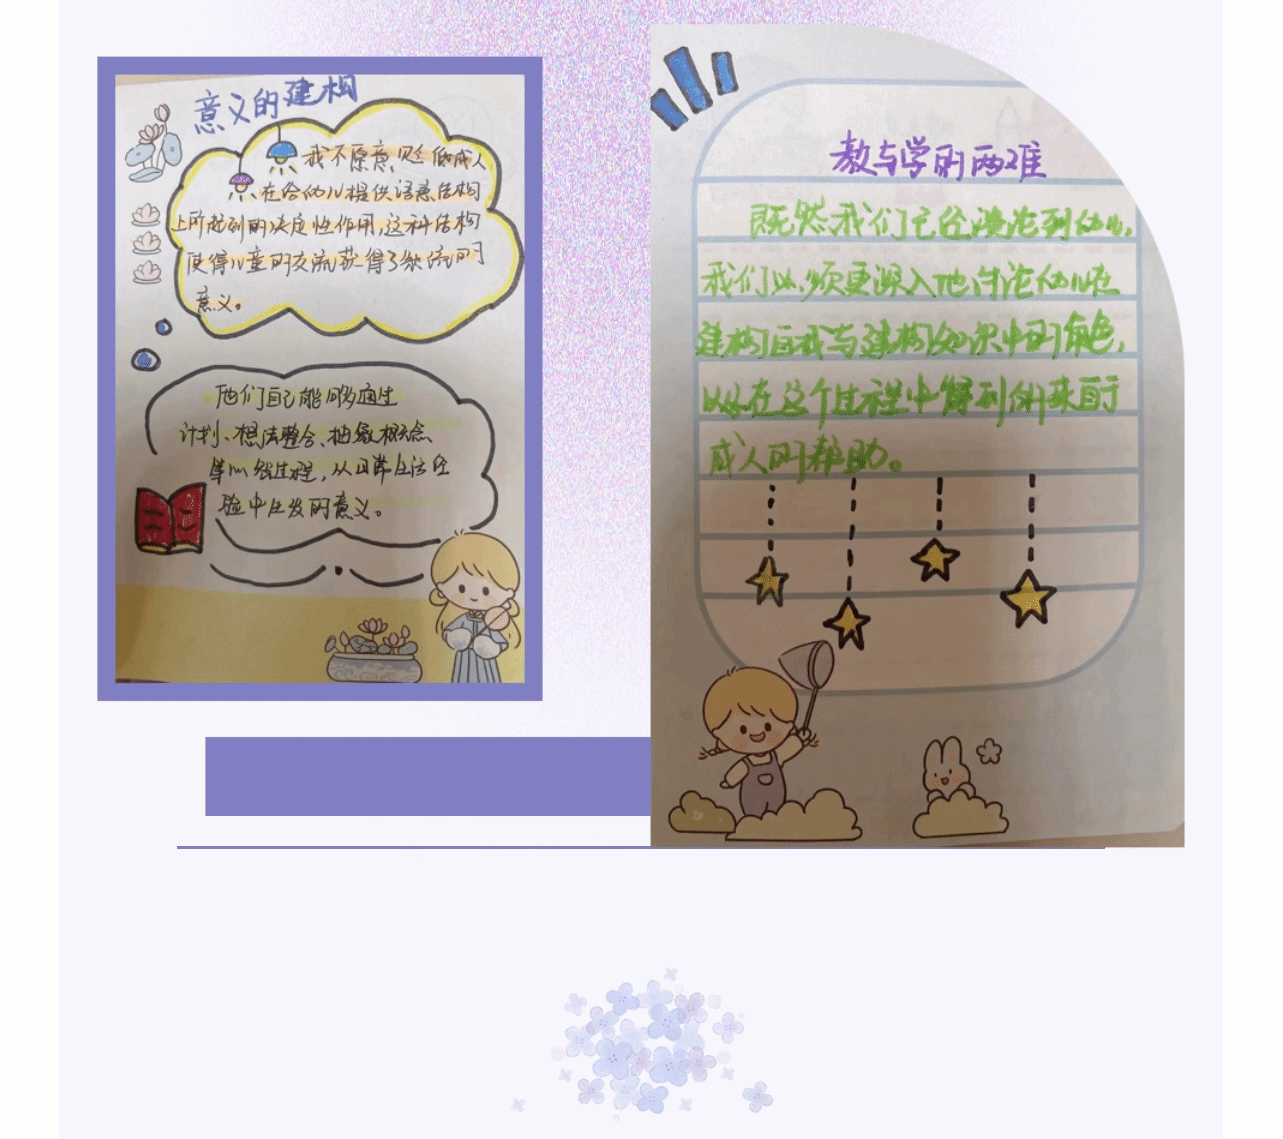 意义的建构
我不愿意贬低成人
在给幼儿提供语意结构
上所起到的决定性作用,这种结构
使得儿童的交流获得了效流的
意义。
他们自己能够通过
计划、想法整合、抽象概念
等心智过程,从日常生活经
验中生发的意义。
教与学的两难
既然我们已经谈论到幼儿,
我们必须更深入地讨论幼儿在
建构自我与建构知识中的角色,
以及在这个过程中得到的来自于
成人的帮助。